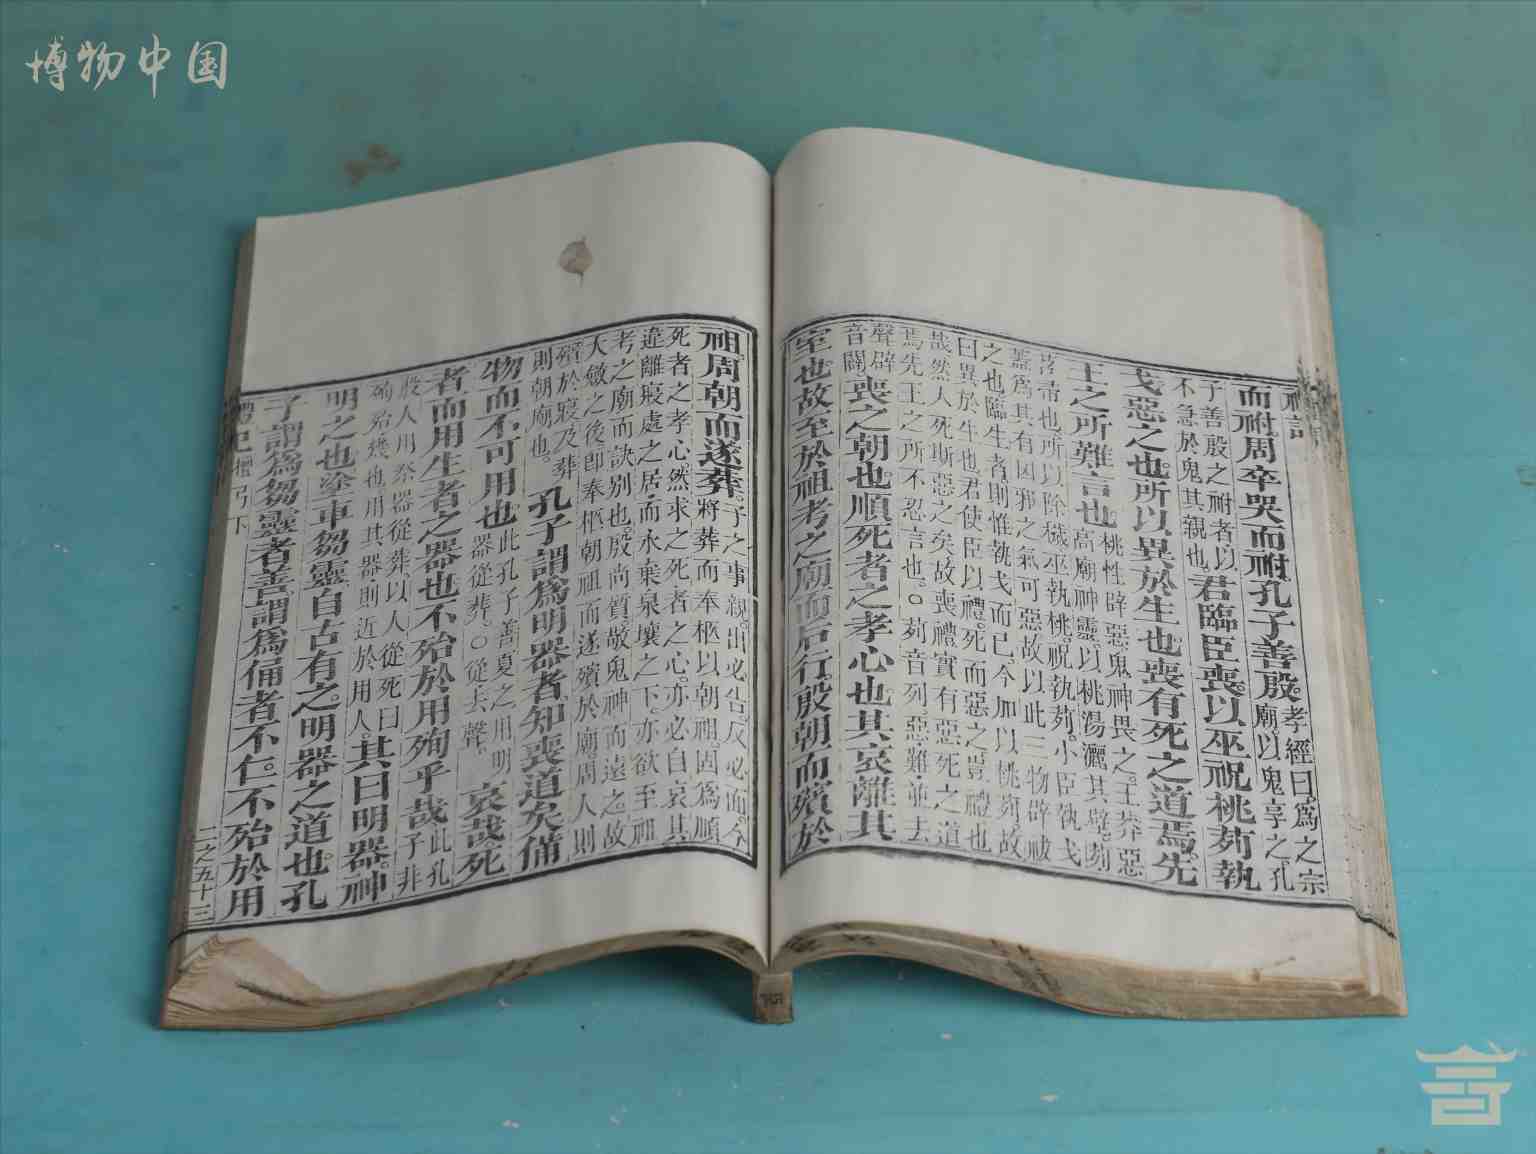 博物中国
而祔周卒哭而祔孔子善殷。孝經曰爲之宗
廟以鬼享之孔
子善殷之祔者以
不急於鬼其親也君臨臣喪。以巫祝桃茢執
戈惡之也。所以異於生也。喪有死之道焉。先
王之所難言也桃性辟惡鬼神畏之。王莽惡
高廟神靈以桃湯灑其壁。茢
苕帚也。所以除穢巫執桃。祝執茢。小臣執戈
蓋爲其有凶邪之氣可惡故以此三物辟祓
之也。臨生者則惟執戈而已。今加以桃茢。故
曰異於生也君使臣以禮。死而惡之豈禮也
哉。然人死斯惡之矣。故喪禮實有惡死之道
焉。先王之所不忍言也。○茢音列。惡難並去
聲。辟
音闢。喪之朝也。順死者之孝心也。其哀離其
室也。故至於祖考之廟而后行。殷朝而殯於
祖。周朝而遂葬。子之事親。出必告。反必面。今
將葬而奉柩以朝祖。固爲順
死者之孝心。然求之死者之心。亦必自哀其
違離寢處之居。而永棄泉壤之下。亦欲至祖
考之廟而訣别也。殷尚質。敬鬼神而遠之。故
大斂之後即奉柩朝祖而遂殯於廟。周人則
殯於寢及葬
則朝廟也。孔子謂爲明器者。知喪道矣。備
物而不可用也此孔子善夏之用明
器從葬。○從去聲。哀哉。死
者而用生者之器也。不殆於用殉乎哉此孔
子非
殷人用祭器從葬。以人從死曰
殉殆幾也用其器。則近於用人。其曰明器。神
明之也。塗車芻靈。自古有之。明器之道也。孔
子謂爲芻靈者善。謂爲俑者不仁。不殆於用
檀弓下
二之五十三